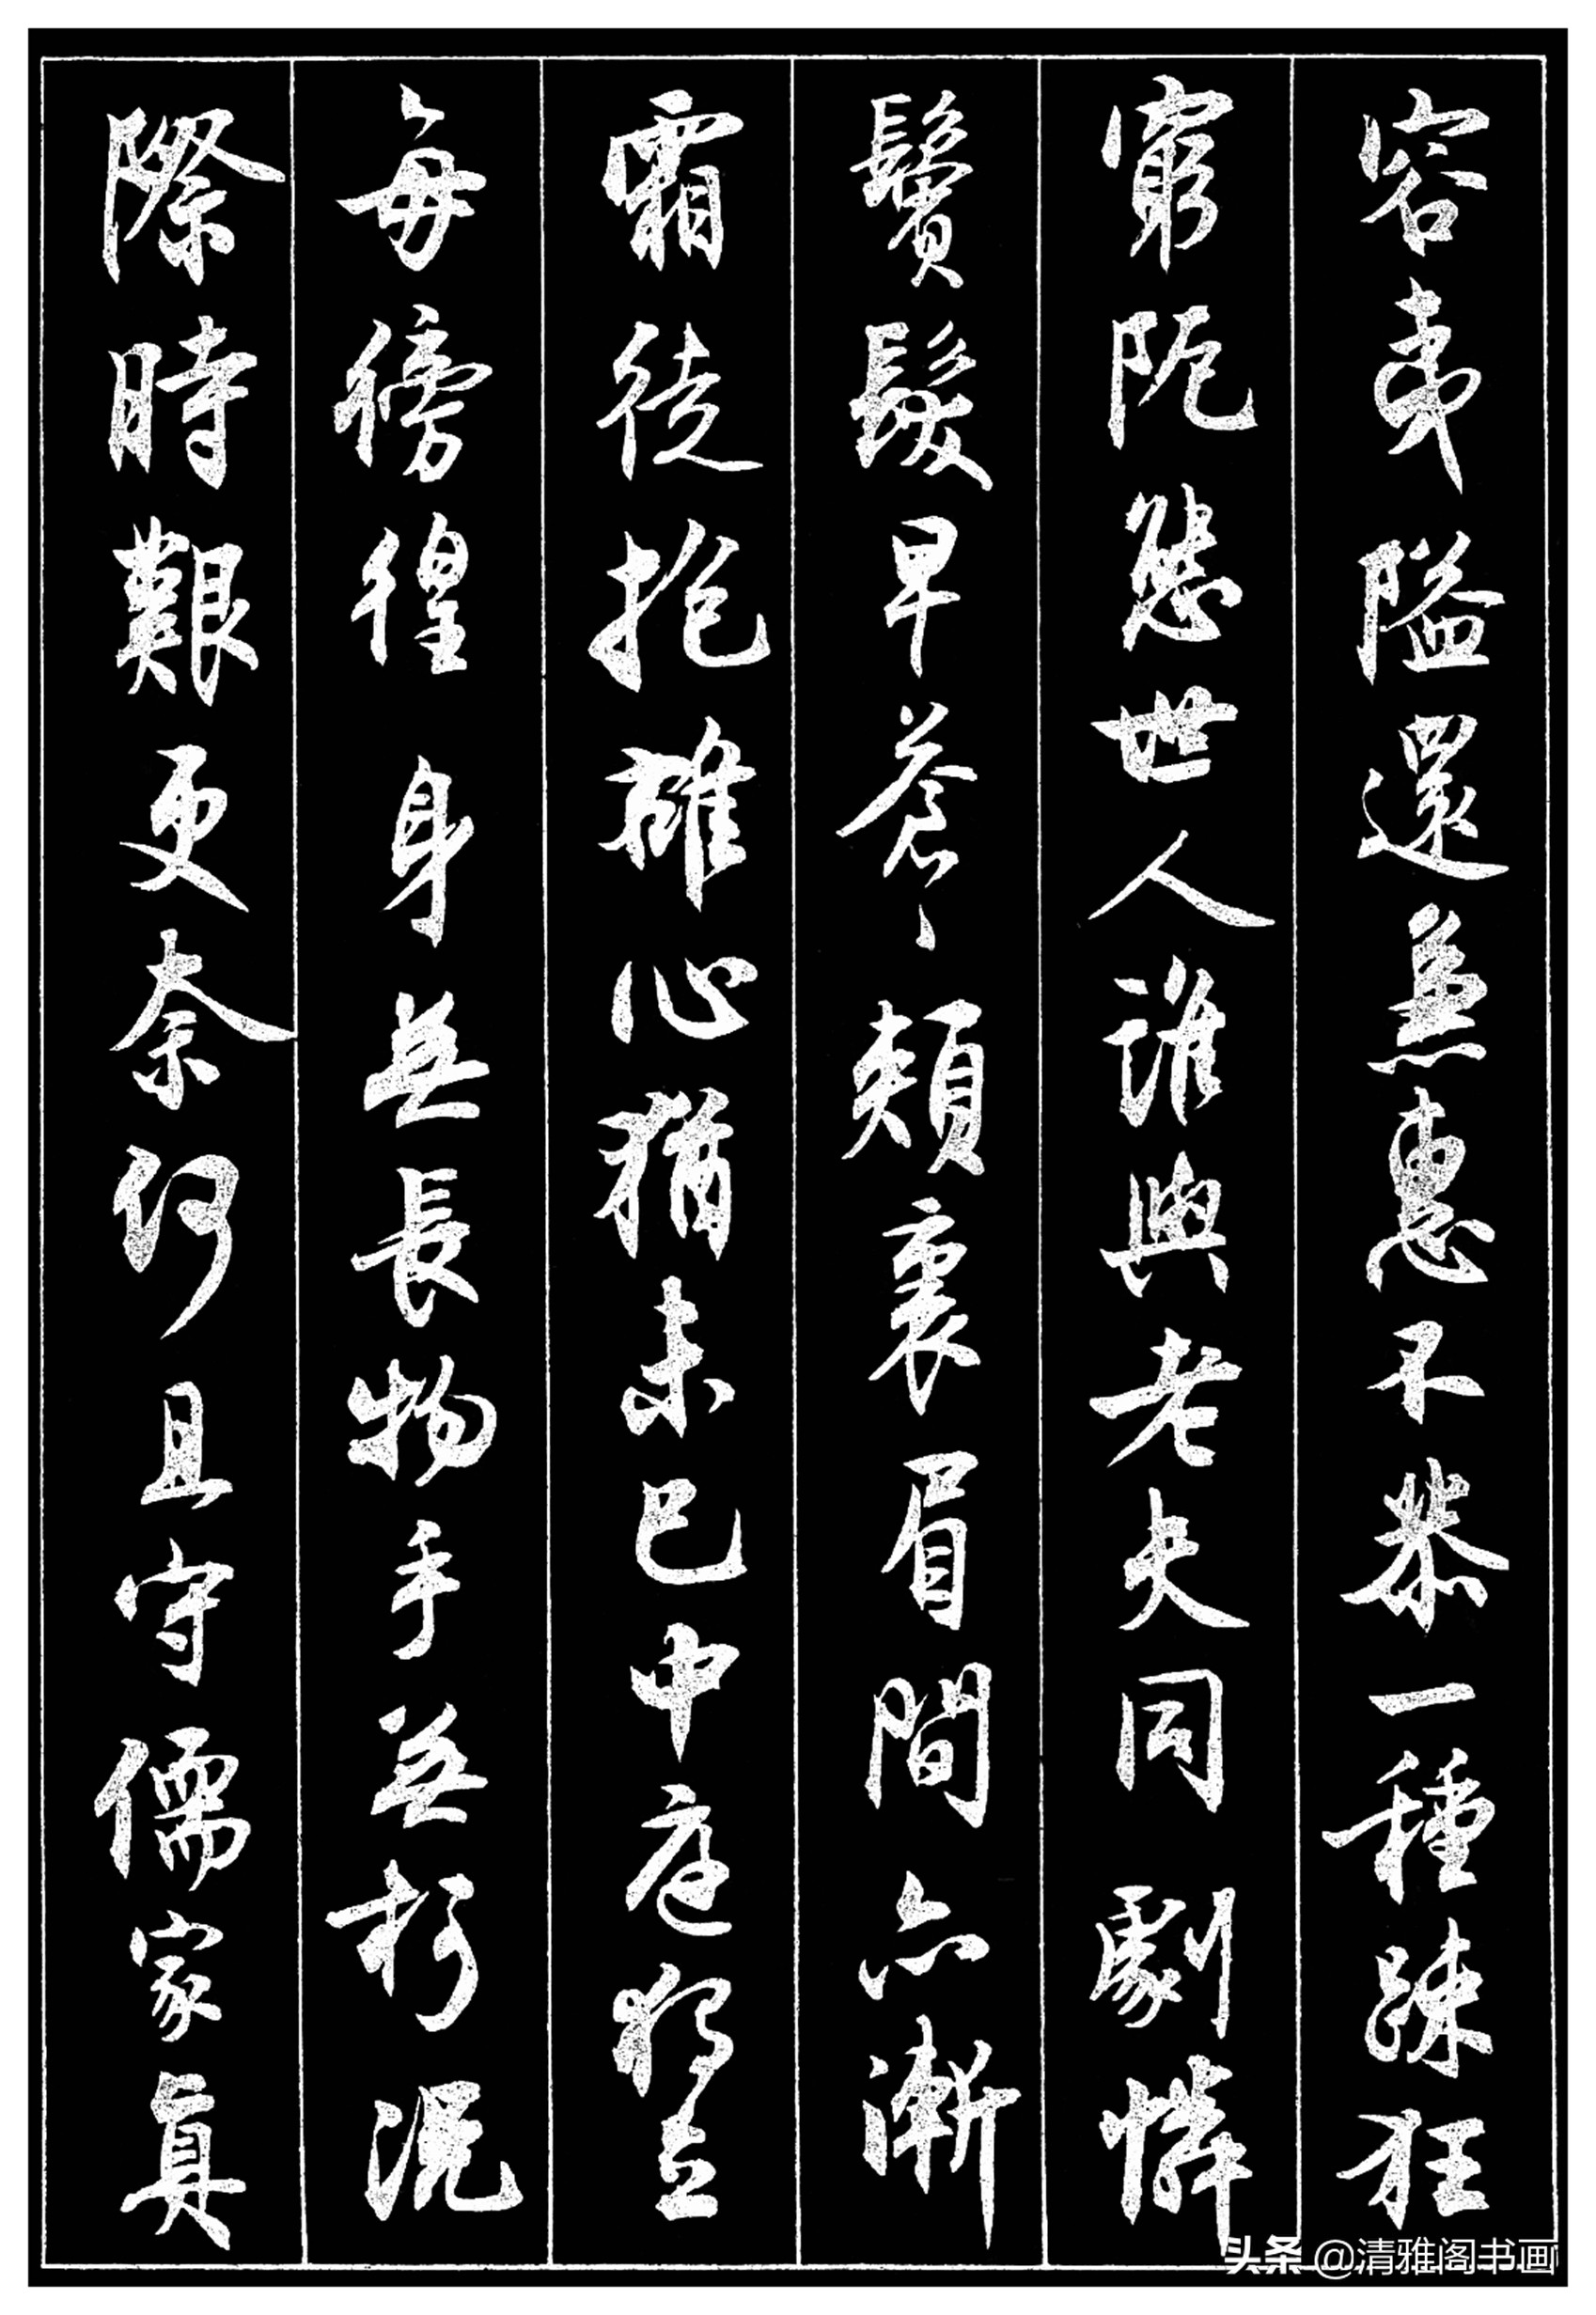 容夷隘還兼惠不恭一種疎狂
窮阨態世人誰與老夫同劇憐
鬢髮早蒼〻頰裏眉間亦漸
霜徒抱雄心猶未已中庭獨立
每徬徨身無長物手無柯況
際時艱更奈何且守儒家真
头条 @清雅阁书画